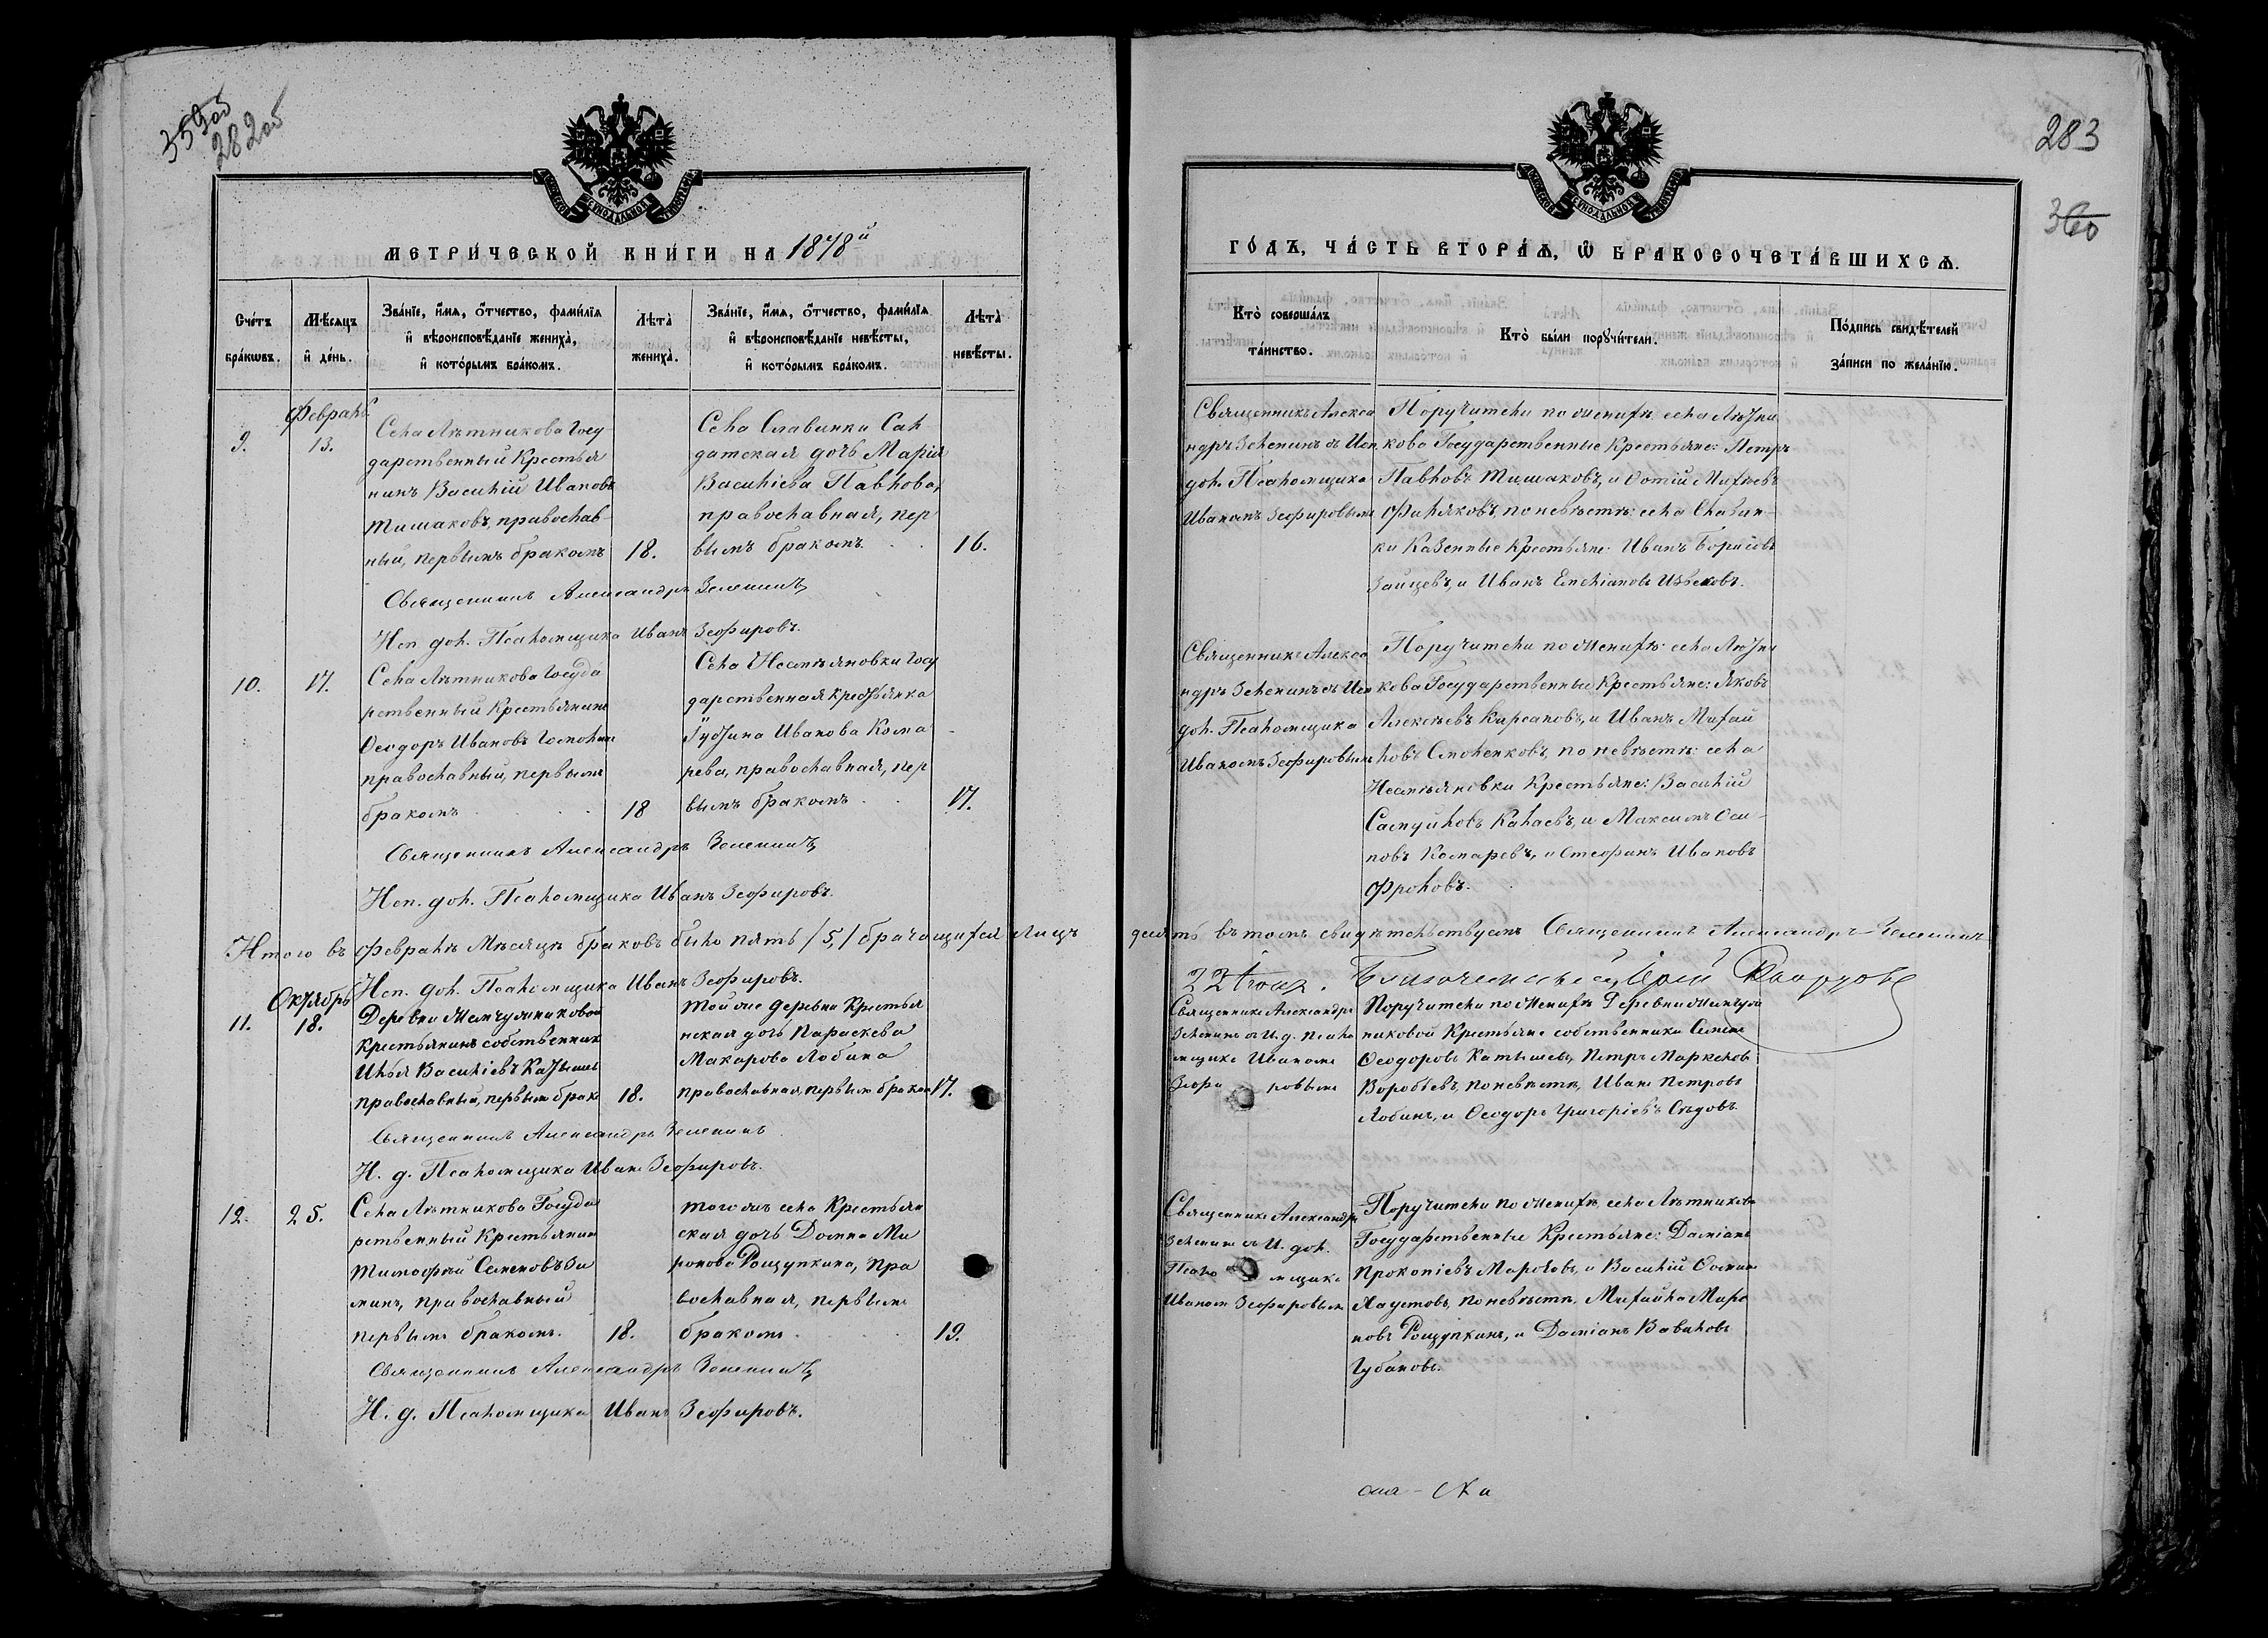 359об
282об
МЕТРИ́ЧЕСКОЙ КНИ́ГИ НА 1878й
Сче́тъ бра́кѡвъ.
Мѣ́сяцъ и҆ де́нь.
Зва́нїе, и҆́мѧ, ѻ҆́тчество, фами́лїѧ
и҆ вѣроисповѣ́данїе жениха̀,
и҆ кото́рымъ бра́комъ.
Лѣта̀ жениха̀.
Зва́нїе, и҆́мѧ, ѻ҆́тчество, фами́лїѧ
и҆ вѣроисповѣ́данїе невѣ́сты,
и҆ кото́рымъ бра́комъ.
Лѣта̀ невѣ́сты.
Февраль
9.
13.
Села Лѣтникова Госу-
дарственный Крестья
нинъ Василій Ивановъ
Тишаковъ, православ-
ный, первымъ бракомъ
18.
Села Славинки Сол
датская дочь Марія
Василіева Павлова,
православная, пер
вымъ бракомъ.
16.
Священникъ Александръ Зеленинъ
Исп. дол. Псаломщика Иванъ Зефировъ.
10.
17.
Села Лѣтникова Госуда
рственный Крестьянинъ
Ѳеодоръ Ивановъ
православный, первымъ
бракомъ
18
Села Несмѣяновки Госу
дарственная крестьянка
Іустина Иванова Кома
рева, православная, пер
вымъ бракомъ
17.
Священникъ Александръ Зеленинъ
Исп. дол. Псаломщика Иванъ Зефировъ.
Итого въ Февралѣ Мѣсяцѣ браковъ было пять /5,/ брачащихся лицъ
Исп. дол. Псаломщика Иванъ Зефировъ.
Октябрь
11.
18.
Деревни
Крестьянинъ собственникъ
Илья Василіевъ Катышевъ
православный, первымъ брак
18.
Той же деревни Крестья
нская дочь Параскева
Макарова Лобина
православная, первымъ браком
17.
Священникъ Александръ Зеленинъ
И. д. Псаломщика Иванъ Зефировъ.
12.
25.
Села Лѣтникова Госуда
рственный Крестьянинъ
Тимофей Семеновъ Зи
минъ, православный
первымъ бракомъ.
18.
Того жъ села Крестьян
ская дочь Домна Ми
ронова Рощупкина, пра
вославная, первымъ
бракомъ
19.
Священникъ Александръ Зеленинъ
И. д. Псаломщика Иванъ Зефировъ.
283
360
ГО́ДЪ, ЧА́СТЬ ВТОРА́Ѧ, Ѽ БРАКОСОЧЕТА́ВШИХСѦ.
Кто̀ соверша́лъ
та́инство.
Кто̀ бы́ли порꙋчи́тели.
По́дпись свидѣ́телей
за́писи по жела́нїю.
Священникъ Алекса
ндръ Зеленинъ съ Исп.
дол. Псаломщика
Иваномъ Зефировымъ
Поручители по женихѣ: села Лѣтни
кова Государственные Крестьяне: Петръ
Павловъ Тишаковъ, и Фотій Михѣевъ
Филяковъ, по невѣстѣ: села Славин-
ки Казенные Крестьяне: Иванъ Борисовъ
Зайцевъ, и Иванъ Емеліановъ
Священникъ Алекса
ндръ Зеленинъ съ Исп
дол. Псаломщика
Иваномъ Зефировымъ
Поручители по женихѣ: села Лѣтни
кова Государственные Крестьяне: Яковъ
Алексѣевъ Кирсановъ, и Иванъ Михай
ловъ по невѣстѣ: села
Несмѣяновки Крестьяне: Василій
Самуйловъ Калаевъ, и Максимъ Оси-
повъ Комаревъ, и Стефанъ Ивановъ
Фроловъ.
десять въ томъ свидѣтельствуемъ Священникъ Александръ Зеленинъ
Священникъ Александръ
Зеленинъ съ И. д. Псало
мщика Иваномъ
Зефи ровымъ
Поручители по женихѣ Деревни
никовой Крестьяне собственники Семенъ
Ѳеодоровъ Катышевъ, Петръ Маркеловъ
Воробьевъ, по невѣстѣ, Иванъ Петровъ
Лобинъ, и Ѳеодоръ Григоріевъ Сѣдовъ.
Священникъ Александръ
Зеленинъ съ И. дол.
Псало мщика
Иваном Зефировымъ
Поручители по женихѣ, села Лѣтникова
Государственные Крестьяне: Даміанъ
Прокопіевъ и Василій Ѳомин
Хаустовъ, по невѣстѣ, Михайла Миро
новъ Рощупкинъ, и Даміанъ Вавиловъ
Губановъ.